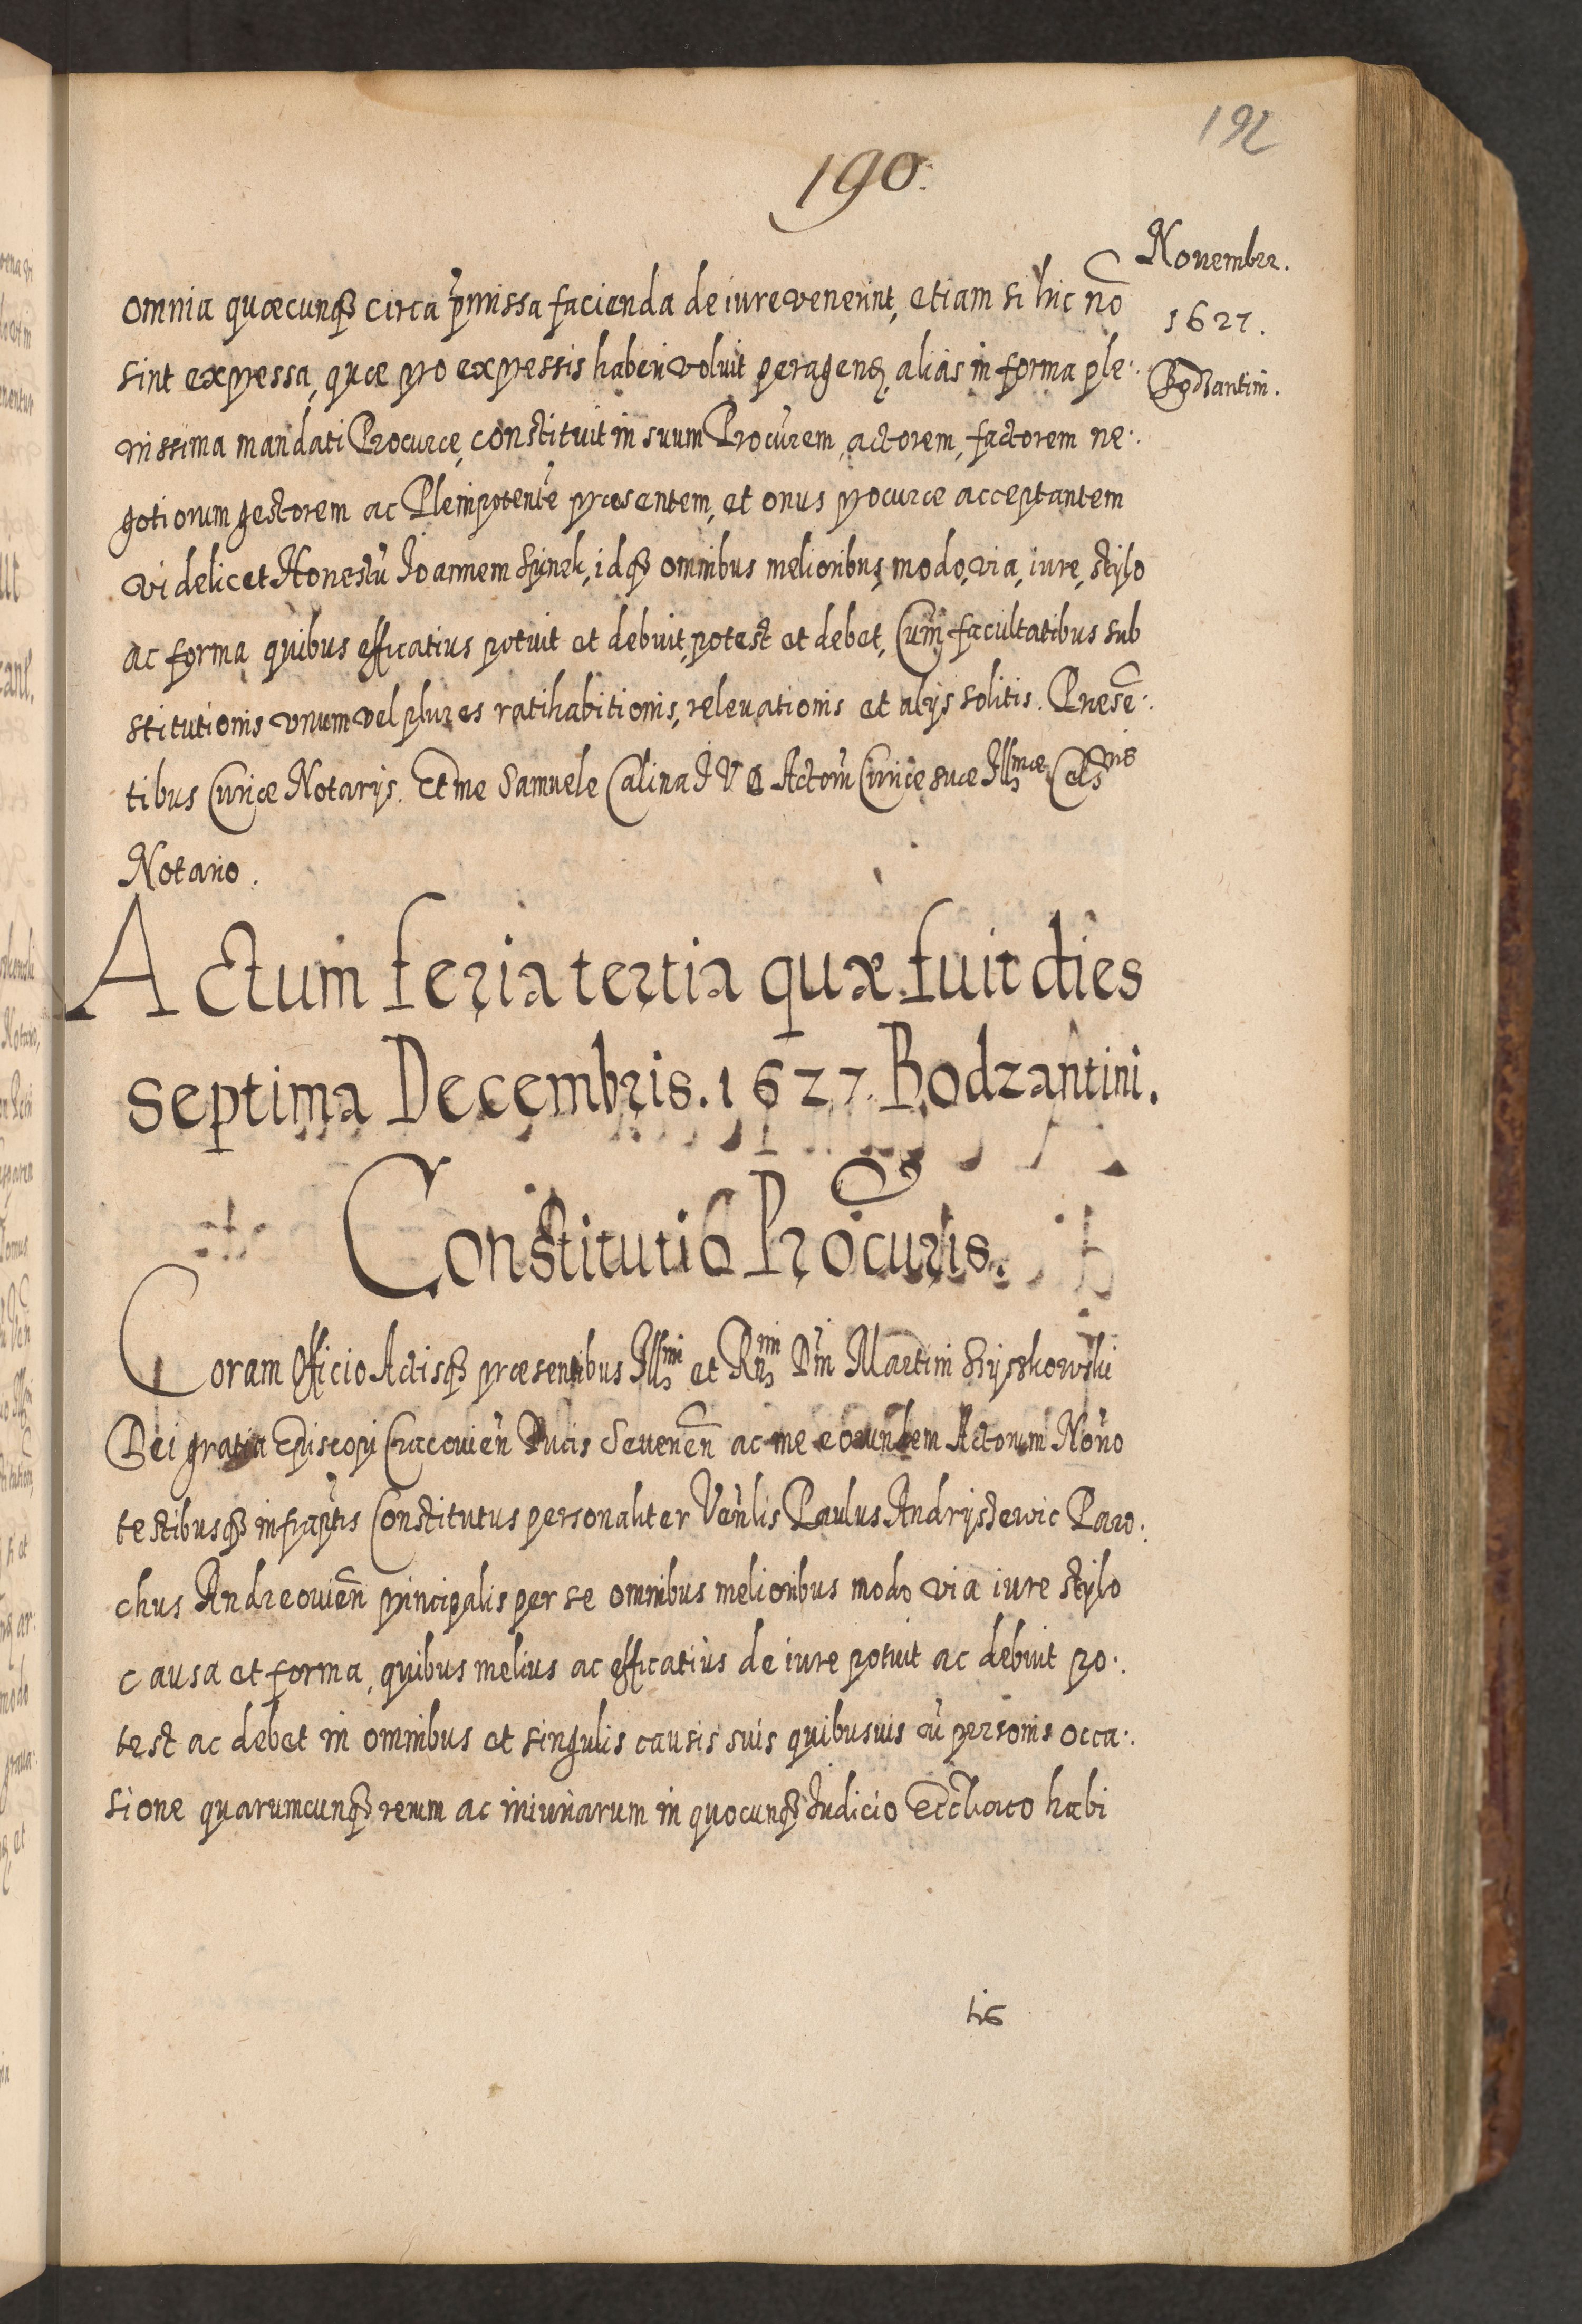 192
190.
Novembr.
1627.
Bodzantin.
omnia quæcunq circa p̃missa facienda de iure venerint, etiam si hic nõ
sint expressa, quæ pro expressis haberi voluit peragenđ, alias in forma ple:
nissima mandati Procuræ, constituit in suum Procurem, actorem, factorem ne:
gotiorum gestorem ac Plenipotente præsentem, et onus procuræ acceptantem
videlicet Honestũ Joannem idq omnibus melioribus, modo, via, iure, stylo
ac forma quibus efficatius potuit et debuit, potest et debet, Cum facultatibus sub
stitutionis vnum vel plures ratihabitionis, releuationis et alijs solitis. Præsẽ:
tibus Curiæ Notarijs. Et me Samuele Calina Actorũ Curiæ suæ Ill̃mæ Cels̃nis
Notario.
Actum feria tertia quæ fuit dies
septima Decembris. 1627. Bodzantini.
Constitutio Prõcuris.
Coram Officio Actisq præsentibus Ill̃mi et Rñmi Dñi Martini Szyszkowski
Dei gratia Episcopi Cracouieñ Ducis Seuerieñ ac me eorundem Actorum Nõrio
testibusq infraptis Constitutus personaliter Venlis Paulus Andrysewic Paro:
chus Andreouieñ principalis per se omnibus melioribus modo via iure stylo
causa et forma, quibus melius ac efficatius de iure potuit ac debuit po:
test ac debet in omnibus et singulis causis suis quibusuis cũ personis occa:
sione quarumcunq rerum ac iniuriarum in quocunq Judicio Eccliaco habi